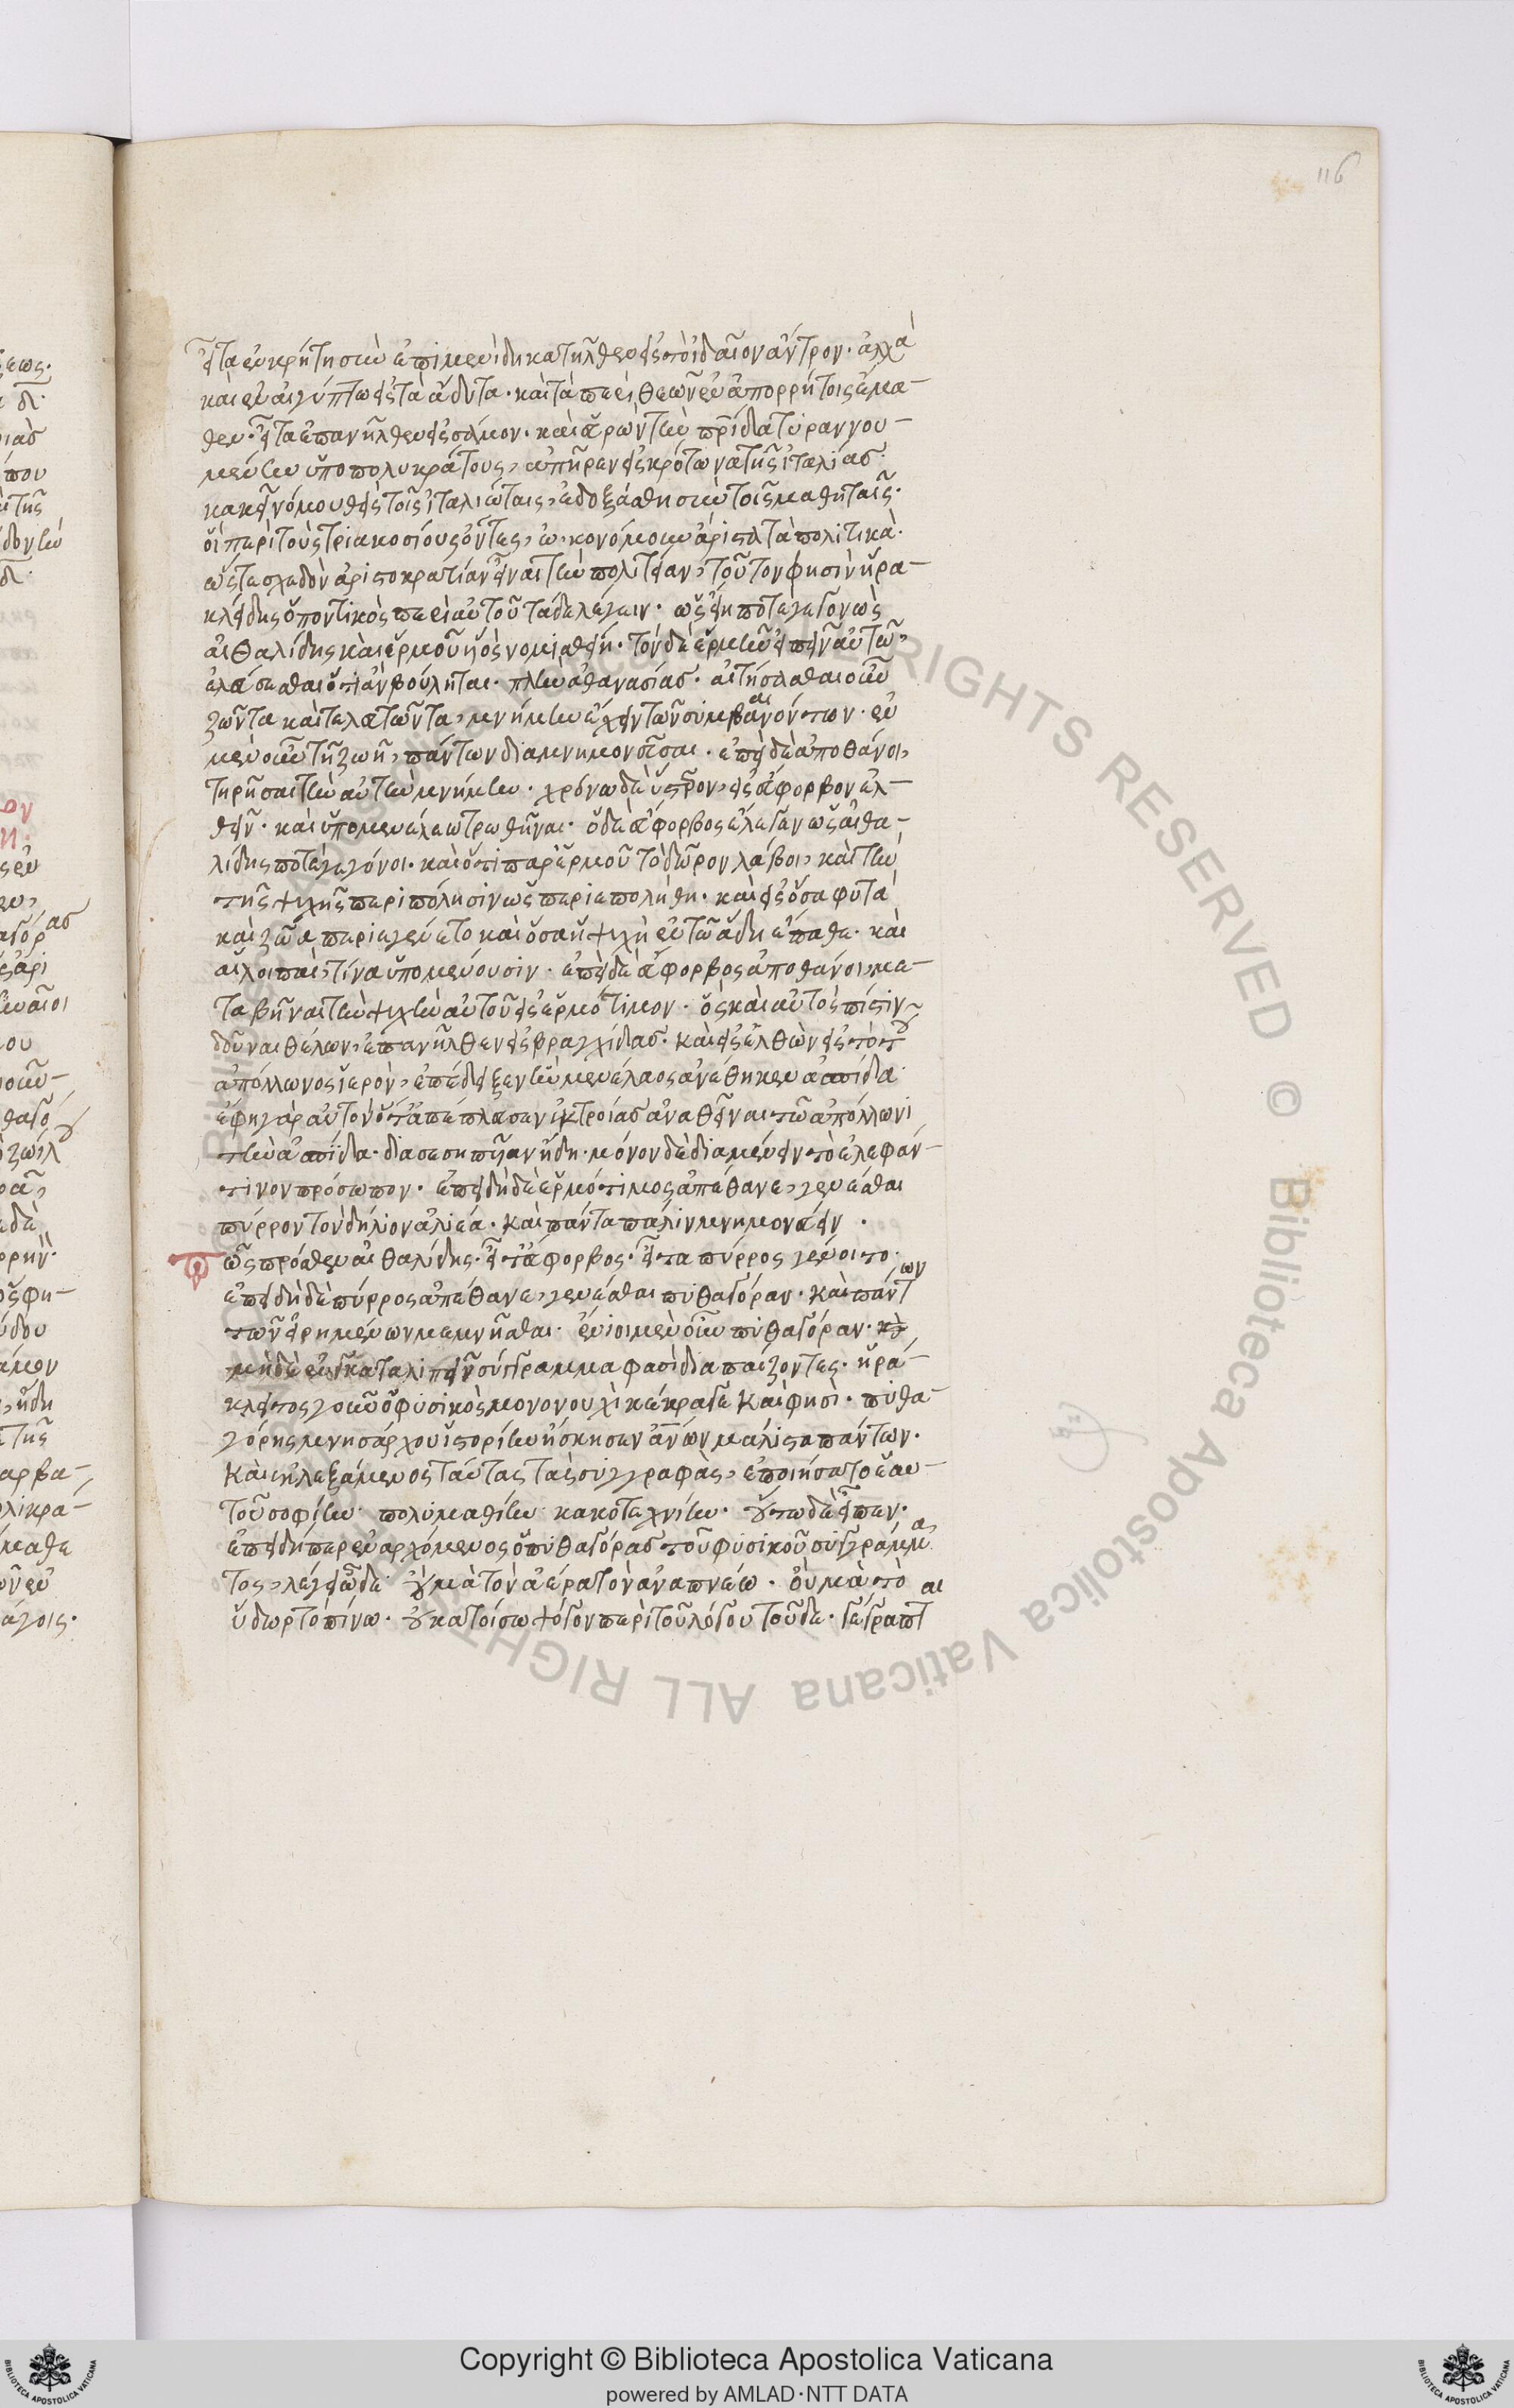 116
εἶτα ἐν κρήτη σὺν ἐπιμενίδη κατῆλθεν εἰς τὸ ἰδαῖον ἄντρον· ἀλλὰ
καὶ ἐν αἰγύπτω εἰς τὰ ἄδυτα· καὶ τὰ περὶ θεῶν ἐν ἀπορρήτοις ἔμα-
θεν· εἶτα ἐπανῆλθεν εἰς σάμον· καὶ εὑρὼν τὴν πρίδα τυραννου-
μένην ὑπὸ πολυκράτους, ἀπῆρεν εἰς κρότωνα τῆς ἰταλίας·
κἀκεῖ νόμους θεὶς τοῖς ἰταλιώταις, ἐδοξάσθη σὺν τοῖς μαθηταῖς·
οἳ περὶ τοὺς τριακοσίους ὄντες, ὠκονόμουν ἄριστα τὰ πολιτικὰ·
ὥστε σχεδὸν ἀριστοκρατίαν εἶναι τὴν πολιτείαν, τοῦτον φησὶν ἡρα-
κλείδης ὁ ποντικὸς περὶ αὐτοῦ τάδε λέγειν· ὡς εἴη ποτὲ γεγονὼς
αἰθαλίδης καὶ ἑρμοῦ υἱὸς νομισθείη· τὸν δὲ ἑρμῆν εἰπεῖν αὐτῶ,
ἑλέσθαι ὅτι ἂν βούληται· πλὴν ἀθανασίας· αἰτήσασθαι οὖν
ζῶντα καὶ τελευτῶντα, μνήμην ἔχειν τῶν συμβαινόντων· ἐν
μὲν οὖν τῆ ζωῆ, πάντων διαμνημονεῦσαι· ἐπεὶ δὲ ἀποθάνοι,
τηρῆσαι τὴν αὐτὴν μνήμην· χρόνω δὲ ὕστερον, εἰς εὔφορβον ἐλ-
θεῖν· καὶ ὑπὸ μενέλεω τρωθῆναι· ὁ δὲ εὔφορβος ἔλεγεν ὡς αἰθα-
λίδης ποτὲ γεγόνοι· καὶ ὅτι παρ' ἑρμοῦ τὸ δῶρον λάβοι, καὶ τὴν
τῆς ψυχῆς περιπόλησιν ὡς περιεπολήθη· καὶ εἰς ὅσα φυτὰ
καὶ ζῶα περιεγένετο καὶ ὅσα ἡ ψυχὴ ἐν τῶ ἅδη ἔπαθε· καὶ
αἱ λοιπαὶ τίνα ὑπομένουσιν· ἐπεὶ δὲ εὔφορβος ἀποθάνοι, με-
ταβῆναι τὴν ψυχὴν αὐτοῦ εἰς ἑρμότιμον· ὃς καὶ αὐτὸς πίστιν
δοῦναι θέλων, ἐπανῆλθεν εἰς βραγχίδας· καὶ εἰσελθὼν εἰς τὸ τοῦ
ἀπόλλωνος ἱερὸν, ἐπέδειξεν ἣν μενέλαος ἀνέθηκεν ἀσπίδα·
ἔφη γὰρ αὐτὸν ὅτ' ἀπέπλευσεν ἐκ τροίας ἀναθεῖναι τῶ ἀπόλλωνι
τὴν ἀσπίδα· διασεσηπυῖαν ἤδη· μόνον δὲ διαμένειν τὸ ἐλεφάν-
τινον πρόσωπον· ἐπειδὴ δὲ ἑρμότιμος ἀπέθανε, γενέσθαι
πύρρον τὸν δήλιον ἁλιέα· καὶ πάντα πάλιν μνημονεύειν·
ὡς πρόσθεν αἰθαλίδης· εἶτ' εὔφορβος· εἶτα πύρρος γένοιτο·
ἐπειδὴ δὲ πύρρος ἀπέθανε, γενέσθαι πυθαγόραν· καὶ πάντων
τῶν εἰρημένων μεμνῆσθαι· ἔνιοι μὲν οὖν πυθαγόραν·
μηδὲ ἓν καταλιπεῖν σύγγραμμα φασὶ διαπαίζοντες· ἡρά-
κλειτος γοῦν ὁ φυσικὸς μονονουχὶ κέκραγε καὶ φησὶ· πυθα-
γόρης μνησάρχου ἱστορίην ἤσκησεν ἀνων μάλιστα πάντων·
καὶ ἐκλεξάμενος ταύτας τὰς συγγραφὰς, ἐποιήσατο ἑαυ-
τοῦ σοφίην πολυμαθίην κακοτεχνίην· οὕτω δὲ εἶπεν·
ἐπειδήπερ ἐναρχόμενος ὁ πυθαγόρας τοῦ φυσικοῦ συγγράμμα
τος, λέγει ὧδε οὐ μὰ τὸν ἀέρα τὸν ἀναπνέω· οὐ μὰ τὸ
ὕδωρ τὸ πίνω· οὐ κατοίσω ψόγον περὶ τοῦ λόγου τοῦδε· γέγραπται
Copyright © Biblioteca Apostolica Vaticana
powered by AMLAD·NTT DATA